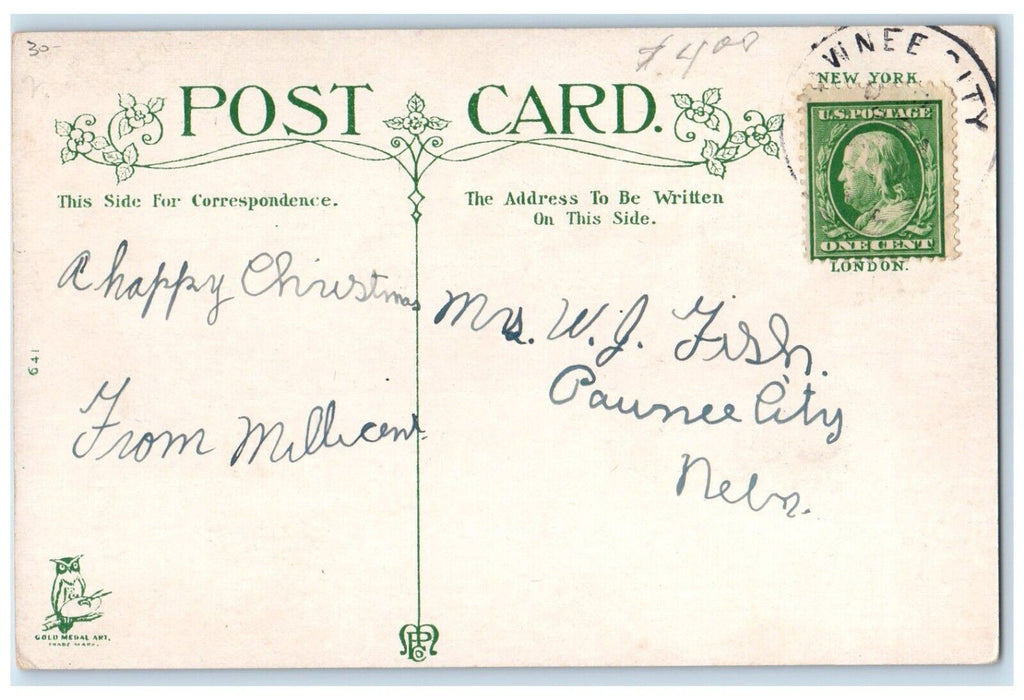 30-
$4.00
WNEE CITY
POST CARD.
NEW YORK
U.S. POSTAGE
ONE CENT
LONDON.
This Side For Correspondence.
The Address To Be Written
On This Side.
A happy Christmas
From Millicent
Mrs. W. J. Fish.
Pawnee City
Nebr.
641
GOLD MEDAL ART.
TRADE MARK.